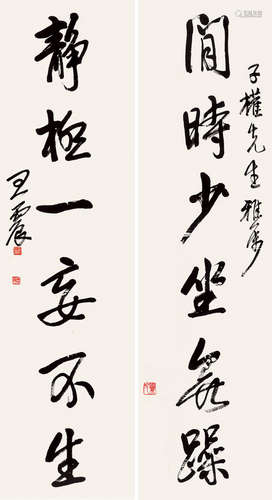 子權先生雅屬
閒時少坐無躁
靜極一妄不生
王震